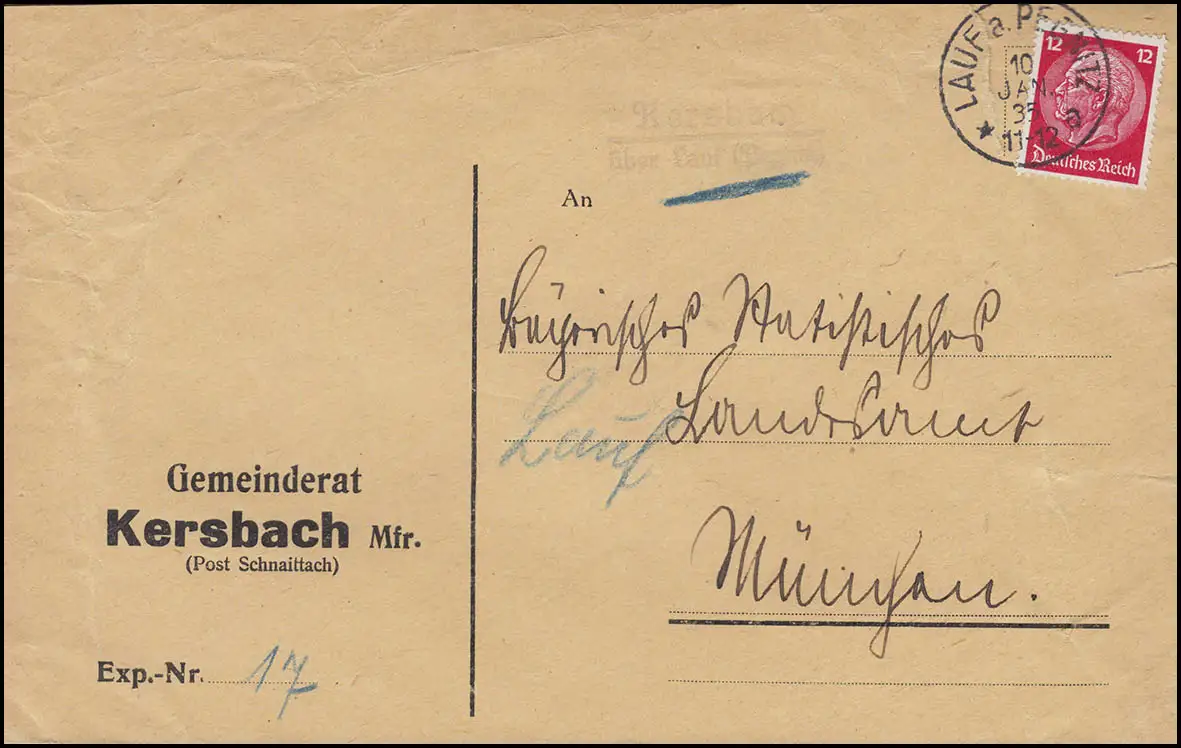 LAUF a. PEGNITZ
10
JAN.
35
11-12
a
12 12
Deutsches Reich
Kersbach
über Lauf (Pegnitz)
An
Bayerisches Statistisches
Landesamt
Lauf
München.
Gemeinderat
Kersbach Mfr.
(Post Schnaittach)
Exp.-Nr. 17